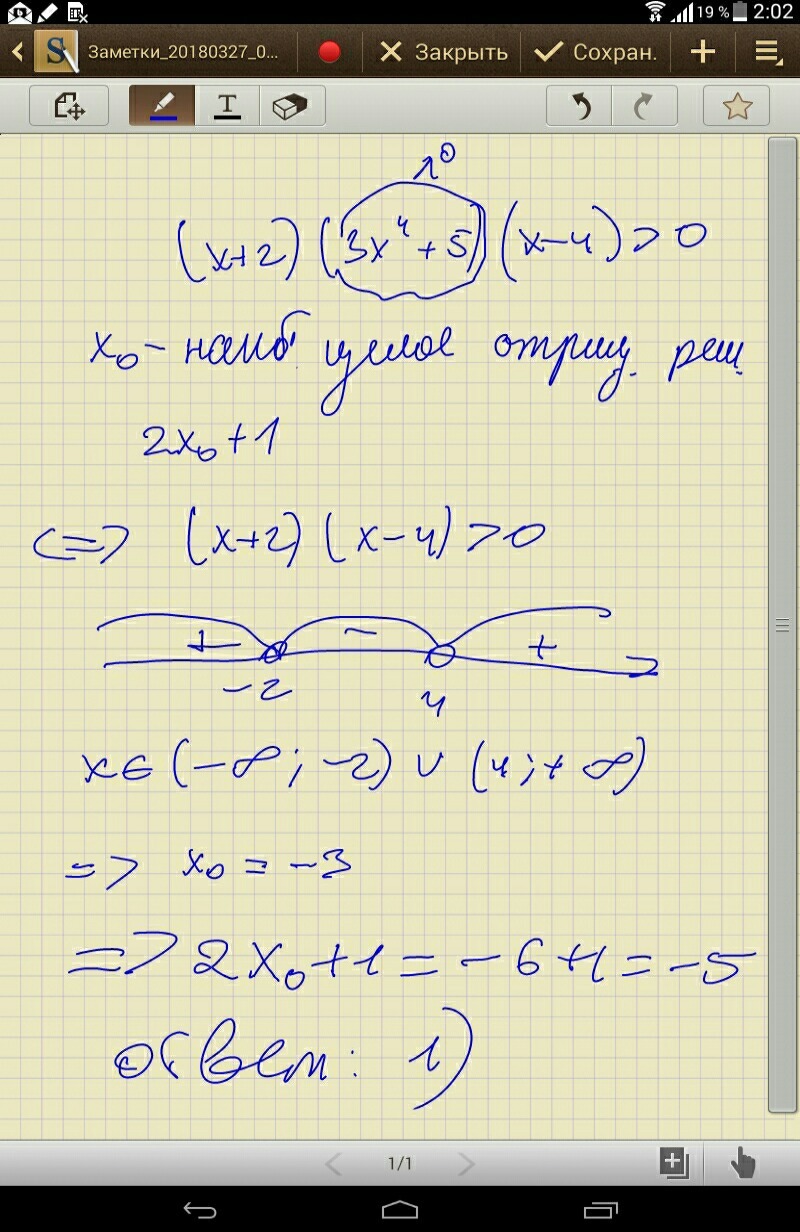 19 % 2:02
Заметки_20180327_0... Закрыть Сохран.
T
(x+2) (3x⁴+5) (x-4) > 0
x₀ - наиб. целое отриц. реш.
2x₀+1
<=> (x+2) (x-4) > 0
+ - +
-2 4
x ∈ (-∞; -2) ∪ (4; +∞)
=> x₀ = -3
=> 2x₀+1 = -6+1 = -5
ответ: 1)
1/1